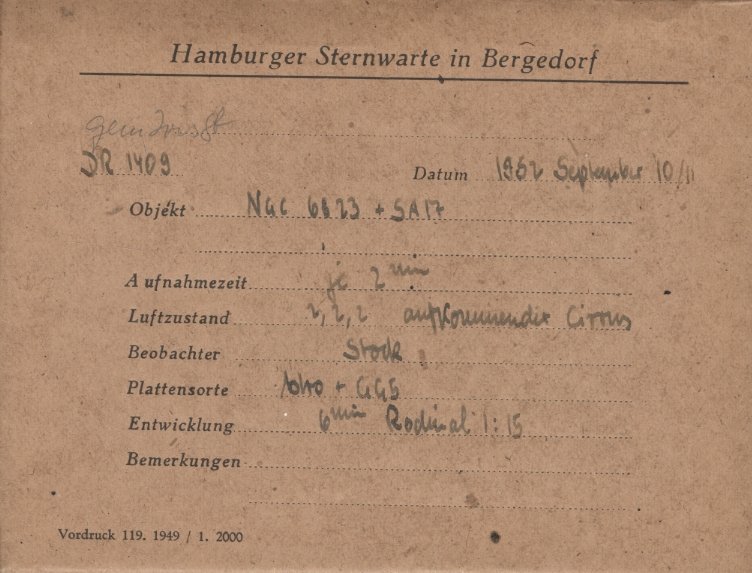 Hamburger Sternwarte in Bergedorf
DR 1409
Datum 1952 September 10/11
Objekt NGC 6823 + SA17
Aufnahmezeit je 2 min
Luftzustand 2, 2, 2 aufkommender Cirrus
Beobachter Stock
Plattensorte + GG5
Entwicklung 6 min Rodinal 1:15
Bemerkungen
Vordruck 119. 1949 / 1. 2000